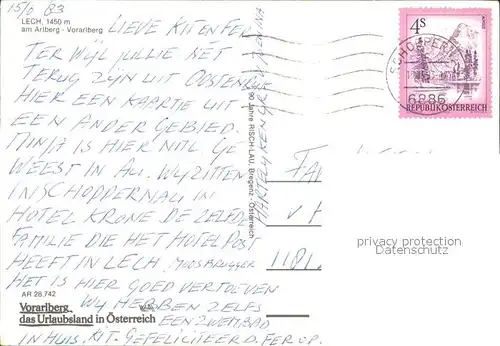 15/0 83
LECH, 1450 m
am Arlberg - Vorarlberg
LIEVE KIT EN FER
TERWYL JULLIE NET
TERUG ZYN UIT OOSTENRYK
HIER EEN KAARTJE UIT
EEN ANDER GEBIED.
IS HIER NIET GE
WEEST IN AU. WY ZITTEN
IN SCHOPPERNAU IN
HOTEL KRONE DE ZELFDE
FAMILIE DIE HET HOTEL POST
HEEFT IN LECH. MOOSBRUGGER
HET IS HIER GOED VERTOEVEN
AR 28.742
WY HEBBEN ZELFS
Vorarlberg
das Urlaubsland in Österreich
EEN ZWEMBAD
IN HUIS. KIT. GEFELICITEERD. FER OP.
HARTELYKE GR
90 Jahre RISCH-LAU, Bregenz - Österreich
4S
REPUBLIK ÖSTERREICH
SCHOPPERN
6886
FA
V H
1181
privacy protection
Datenschutz